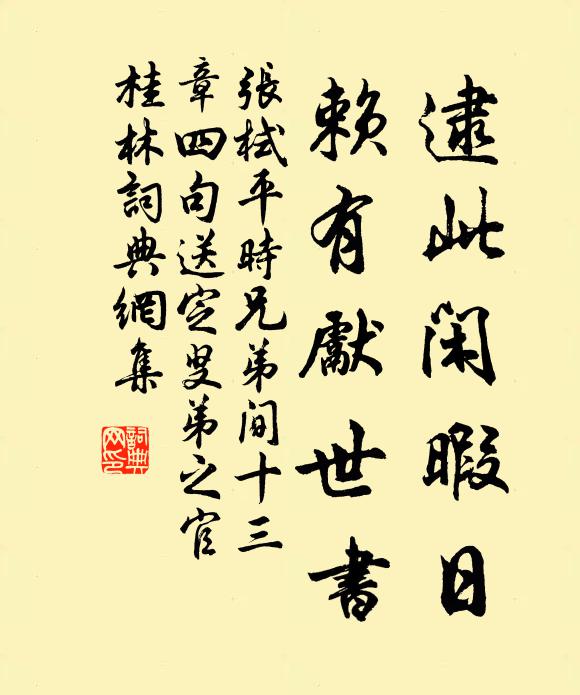 逮此閑暇日
賴有獻世書
張栻平時兄弟間十三
章四句送定叟弟之官
桂林詞典網集
詞典
网